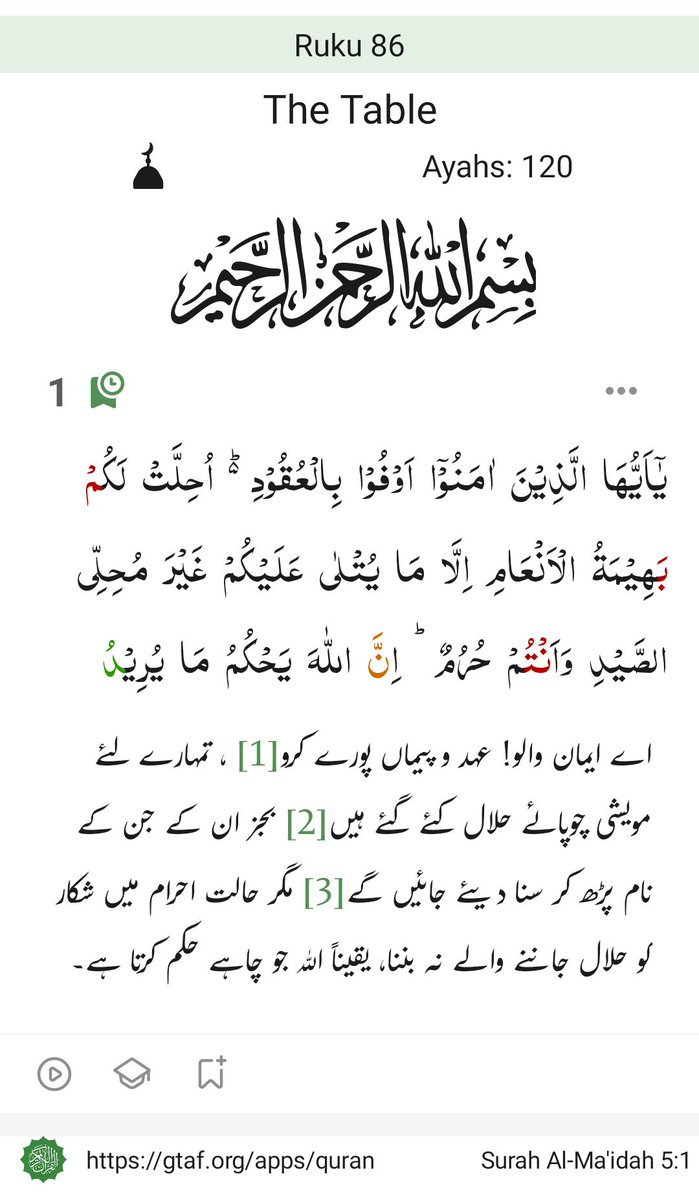 Ruku 86
The Table
Ayahs: 120
بِسْمِ اللهِ الرَّحْمٰنِ الرَّحِيْمِ
1
يٰۤاَيُّهَا الَّذِيْنَ اٰمَنُوْۤا اَوْفُوْا بِالْعُقُوْدِ ؕ۬ اُحِلَّتْ لَكُمْ
بَهِيْمَةُ الْاَنْعَامِ اِلَّا مَا يُتْلٰى عَلَيْكُمْ غَيْرَ مُحِلِّى
الصَّيْدِ وَاَنْتُمْ حُرُمٌ ؕ اِنَّ اللّٰهَ يَحْكُمُ مَا يُرِيْدُ
اے ایمان والو! عہد و پیماں پورے کرو[1] ، تمہارے لئے
مویشی چوپائے حلال کئے گئے ہیں[2] بجز ان کے جن کے
نام پڑھ کر سنا دیئے جائیں گے[3] مگر حالت احرام میں شکار
کو حلال جاننے والے نہ بننا، یقیناً اللہ جو چاہے حکم کرتا ہے۔
https://gtaf.org/apps/quran
Surah Al-Ma'idah 5:1